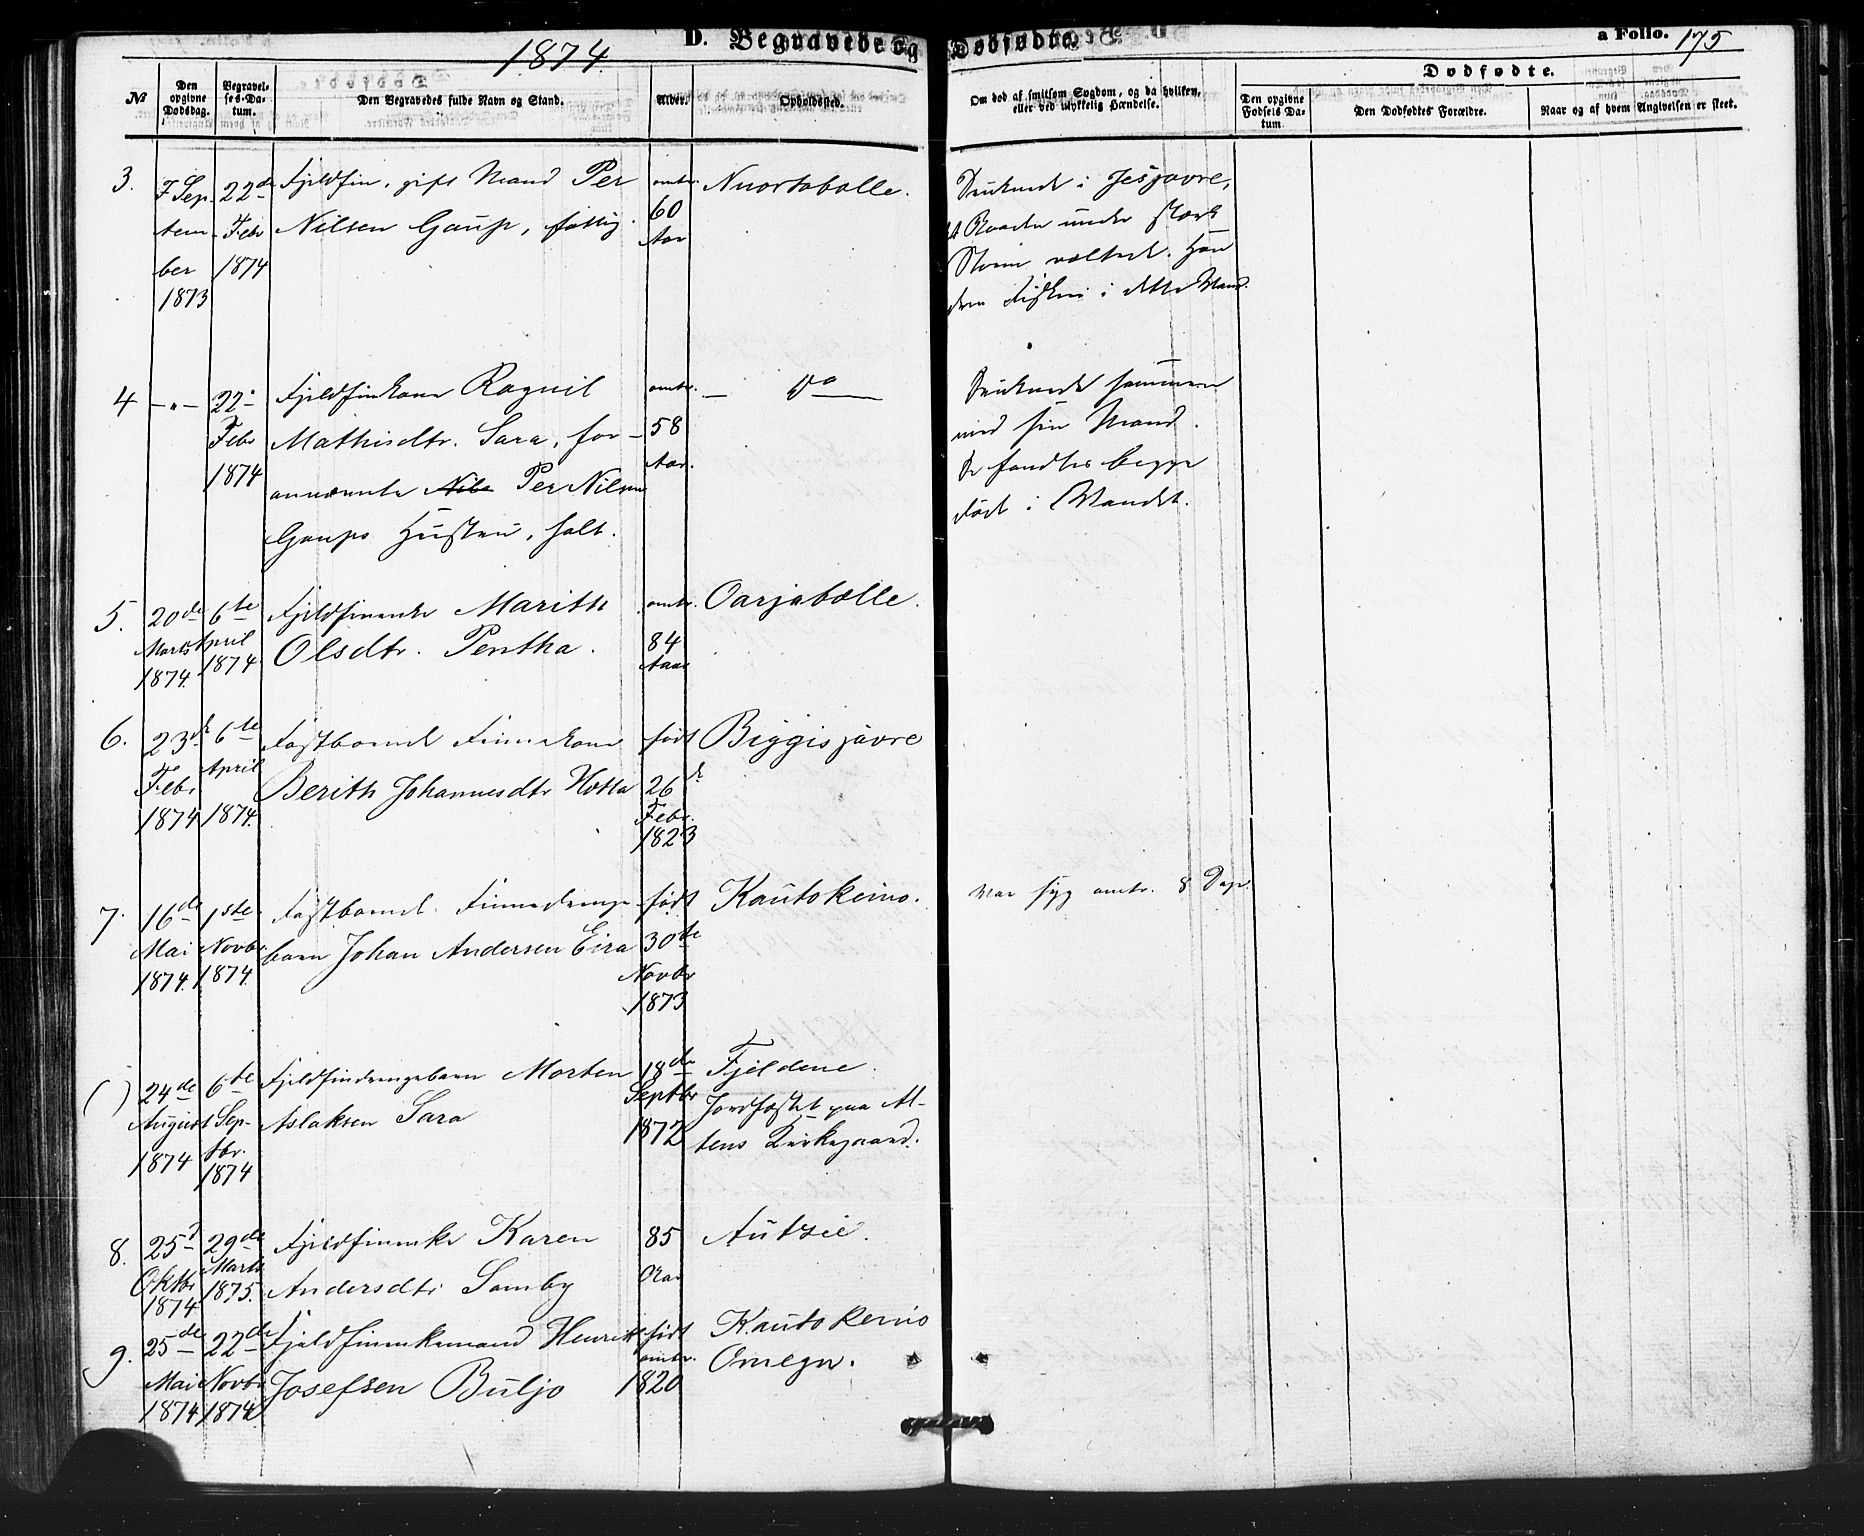 1874.
D. Begravede og Dødfødte.
a Folio. 175
№
Den opgivne Dødsdag.
Begravelses-Datum.
Den Begravedes fulde Navn og Stand.
Alder.
Opholdssted.
Om død af smitsom Sygdom, og da hvilken, eller ved ulykkelig Hændelse.
Dødfødte.
Den opgivne Fødsels Datum
Den Dødfødtes Forældre.
Naar og af hvem Angivelsen er skeet.
3.
September
1873
22de
Febr
1874
Fjeldfin, gift Mand Per
Nilsen Gaup, fattig.
omtr.
60
Aar
Nuortaballe.
Druknede i Jesjavre,
Baaden under stærk
Storm væltede. Han
drev Fiskeri i dette Vand.
4
— " —
22de
Febr
1874
Fjeldfinkone Ragnil
Mathisdtr. Sara, for-
annævnte Nils Per Nilsen
Gaups Hustru, halt.
omtr.
58
Aar.
— Do —
Druknede sammen
med sin Mand.
De fandtes begge
død i Vandet.
5.
20de
Marts
1874.
6te
April
1874
Fjeldfinenke Marith
Olsdtr. Pentha.
omtr.
84
Aar
Oarjaballe.
6.
23de
Febr
1874
6te
April
1874.
Fastboende Finnekone
Berith Johannesdtr Hætta
født
26de
Febr.
1823
Biggisjavre
7.
16de
Mai
1874.
1ste
Novbr.
1874.
Fastboende Finnedrenge
barn Johan Andersen Eira
født
30te
Novbr
1873
Kautokeino.
Var syg omtr. 8 Dage.
( )
24de
August
1874
6te
Sep-
tbr.
1874
Fjeldfindrengebarn Morten
Aslaksen Sara
18de
Septbr
1872
Fjeldene.
Jordfæstet paa Al-
tens Kirkegaard.
8.
25de
Oktbr
1874
29de
Marts
1875.
Fjeldfinenke Karen
Andersdtr Somby
85
Aar
Autzie.
9.
25de
Mai
1874
22de
Novbr
1874
Fjeldfinenkemand Henrik
Josefsen Buljo
født
omtr.
1820
Kautokeino
Omegn.